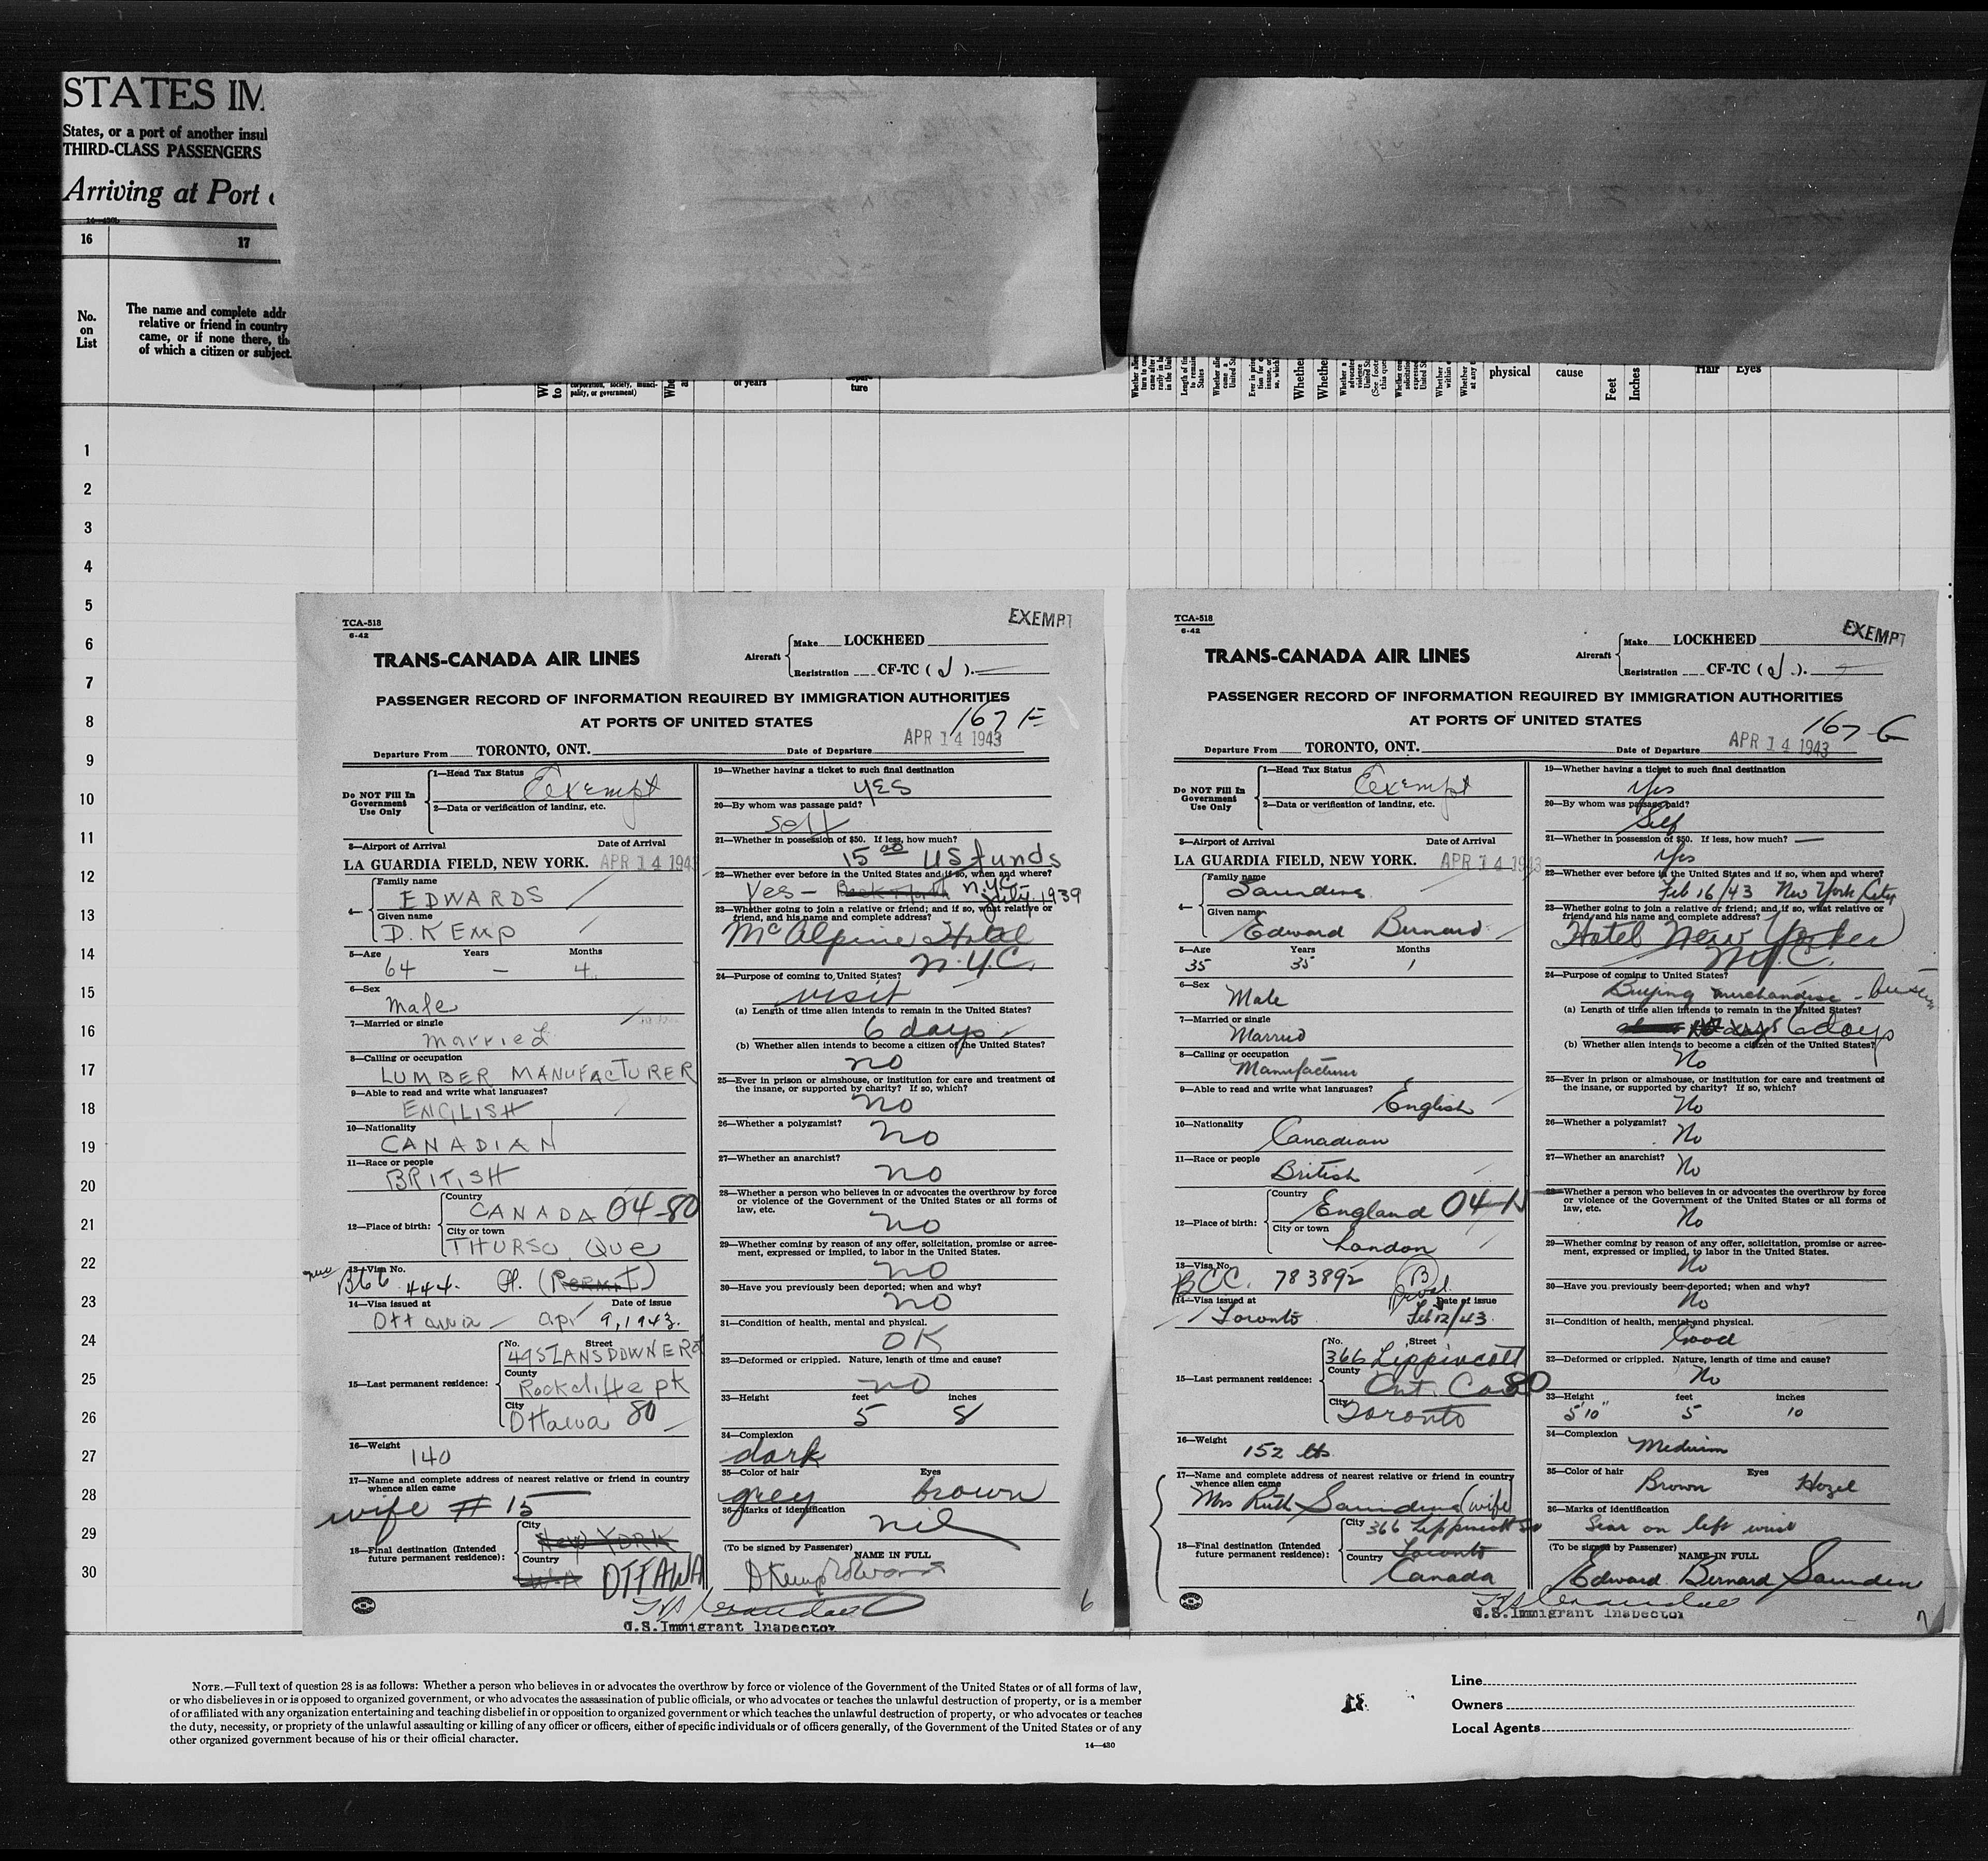 STATES IM
States, or a port of another insul
THIRD-CLASS PASSENGERS
Arriving at Port
16 17
No. on List
The name and complete addr
relative or friend in country
came, or if none there, th
of which a citizen or subject
corporation, society, munici-
pality, or government)
of years
depar-
ture
physical
cause
Feet
Inches
Hair
Eyes
1
2
3
4
5
6
7
8
9
10
11
12
13
14
15
16
17
18
19
20
21
22
23
24
25
26
27
28
29
30
TCA-518
6-42
EXEMPT
TRANS-CANADA AIR LINES
Aircraft
Make LOCKHEED
Registration CF-TC (J).
PASSENGER RECORD OF INFORMATION REQUIRED BY IMMIGRATION AUTHORITIES
AT PORTS OF UNITED STATES
167 F
Departure From TORONTO, ONT. Date of Departure APR 14 1943
Do NOT Fill In
Government
Use Only
1—Head Tax Status Exempt
2—Data or verification of landing, etc.
3—Airport of Arrival Date of Arrival
LA GUARDIA FIELD, NEW YORK. APR 14 194
4— Family name
EDWARDS
Given name
D. KEMP
5—Age Years Months
64 — 4
6—Sex
Male
7—Married or single
married
8—Calling or occupation
LUMBER MANUFACTURER
9—Able to read and write what languages?
ENGLISH
10—Nationality
CANADIAN
11—Race or people
BRITISH
12—Place of birth:
Country
CANADA 04-80
City or town
THURSO, QUE
13—Visa No.
444.
14—Visa issued at Date of issue
Ottawa Apr 9, 1943.
15—Last permanent residence:
No. Street
495 LANSDOWNE Rd
County
Rockcliffe pk
City
Ottawa 80
16—Weight
140
17—Name and complete address of nearest relative or friend in country
whence alien came
wife # 15
18—Final destination (Intended
future permanent residence):
City
New YORK
Country
OTTAWA
19—Whether having a ticket to such final destination
YES
20—By whom was passage paid?
self
21—Whether in possession of $50. If less, how much?
15 00 US funds
22—Whether ever before in the United States and if so, when and where?
Yes — N.Y.C. July, 1939
23—Whether going to join a relative or friend; and if so, what relative or
friend, and his name and complete address?
McAlpine Hotel
N.Y.C.
24—Purpose of coming to United States?
visit
(a) Length of time alien intends to remain in the United States?
6 days
(b) Whether alien intends to become a citizen of the United States?
no
25—Ever in prison or almshouse, or institution for care and treatment of
the insane, or supported by charity? If so, which?
no
26—Whether a polygamist?
no
27—Whether an anarchist?
no
28—Whether a person who believes in or advocates the overthrow by force
or violence of the Government of the United States or all forms of
law, etc.
no
29—Whether coming by reason of any offer, solicitation, promise or agree-
ment, expressed or implied, to labor in the United States.
no
30—Have you previously been deported; when and why?
no
31—Condition of health, mental and physical.
OK
32—Deformed or crippled. Nature, length of time and cause?
no
33—Height feet inches
5 8
34—Complexion
dark
35—Color of hair Eyes
grey brown
36—Marks of identification
nil
(To be signed by Passenger) NAME IN FULL
D Kemp Edwards
U.S. Immigrant Inspector
6
TCA-518
6-42
EXEMPT
TRANS-CANADA AIR LINES
Aircraft
Make LOCKHEED
Registration CF-TC (J).
PASSENGER RECORD OF INFORMATION REQUIRED BY IMMIGRATION AUTHORITIES
AT PORTS OF UNITED STATES
167 G
Departure From TORONTO, ONT. Date of Departure APR 14 1943
Do NOT Fill In
Government
Use Only
1—Head Tax Status Exempt
2—Data or verification of landing, etc.
3—Airport of Arrival Date of Arrival
LA GUARDIA FIELD, NEW YORK. APR 14 1943
4— Family name
Saunders
Given name
Edward Bernard
5—Age Years Months
35 35 1
6—Sex
Male
7—Married or single
Married
8—Calling or occupation
Manufacturer
9—Able to read and write what languages?
English
10—Nationality
Canadian
11—Race or people
British
12—Place of birth:
Country
England 04-
City or town
London
13—Visa No.
BCC. 783892
14—Visa issued at Date of issue
Toronto Feb 12/43
15—Last permanent residence:
No. Street
366 Lippincott
County
Ont. Can 80
City
Toronto
16—Weight
152 lbs
17—Name and complete address of nearest relative or friend in country
whence alien came
Mrs Ruth Saunders (wife)
18—Final destination (Intended
future permanent residence):
City
366 Lippincott St
Toronto
Country
Canada
19—Whether having a ticket to such final destination
Yes
20—By whom was passage paid?
Self
21—Whether in possession of $50. If less, how much? —
Yes
22—Whether ever before in the United States and if so, when and where?
Feb 16/43 New York City
23—Whether going to join a relative or friend; and if so, what relative or
friend, and his name and complete address?
Hotel New Yorker
N.Y.C.
24—Purpose of coming to United States?
Buying merchandise -
(a) Length of time alien intends to remain in the United States?
6 days
(b) Whether alien intends to become a citizen of the United States?
No
25—Ever in prison or almshouse, or institution for care and treatment of
the insane, or supported by charity? If so, which?
No
26—Whether a polygamist?
No
27—Whether an anarchist?
No
28—Whether a person who believes in or advocates the overthrow by force
or violence of the Government of the United States or all forms of
law, etc.
No
29—Whether coming by reason of any offer, solicitation, promise or agree-
ment, expressed or implied, to labor in the United States.
No
30—Have you previously been deported; when and why?
No
31—Condition of health, mental and physical.
Good
32—Deformed or crippled. Nature, length of time and cause?
No
33—Height feet inches
5'10" 5 10
34—Complexion
Medium
35—Color of hair Eyes
Brown Hazel
36—Marks of identification
Scar on left wrist
(To be signed by Passenger) NAME IN FULL
Edward Bernard Saunders
U.S. Immigrant Inspector
7
NOTE.—Full text of question 28 is as follows: Whether a person who believes in or advocates the overthrow by force or violence of the Government of the United States or of all forms of law,
or who disbelieves in or is opposed to organized government, or who advocates the assassination of public officials, or who advocates or teaches the unlawful destruction of property, or is a member
of or affiliated with any organization entertaining and teaching disbelief in or opposition to organized government or which teaches the unlawful destruction of property, or who advocates or teaches
the duty, necessity, or propriety of the unlawful assaulting or killing of any officer or officers, either of specific individuals or of officers generally, of the Government of the United States or of any
other organized government because of his or their official character.
14—430
Line
Owners
Local Agents